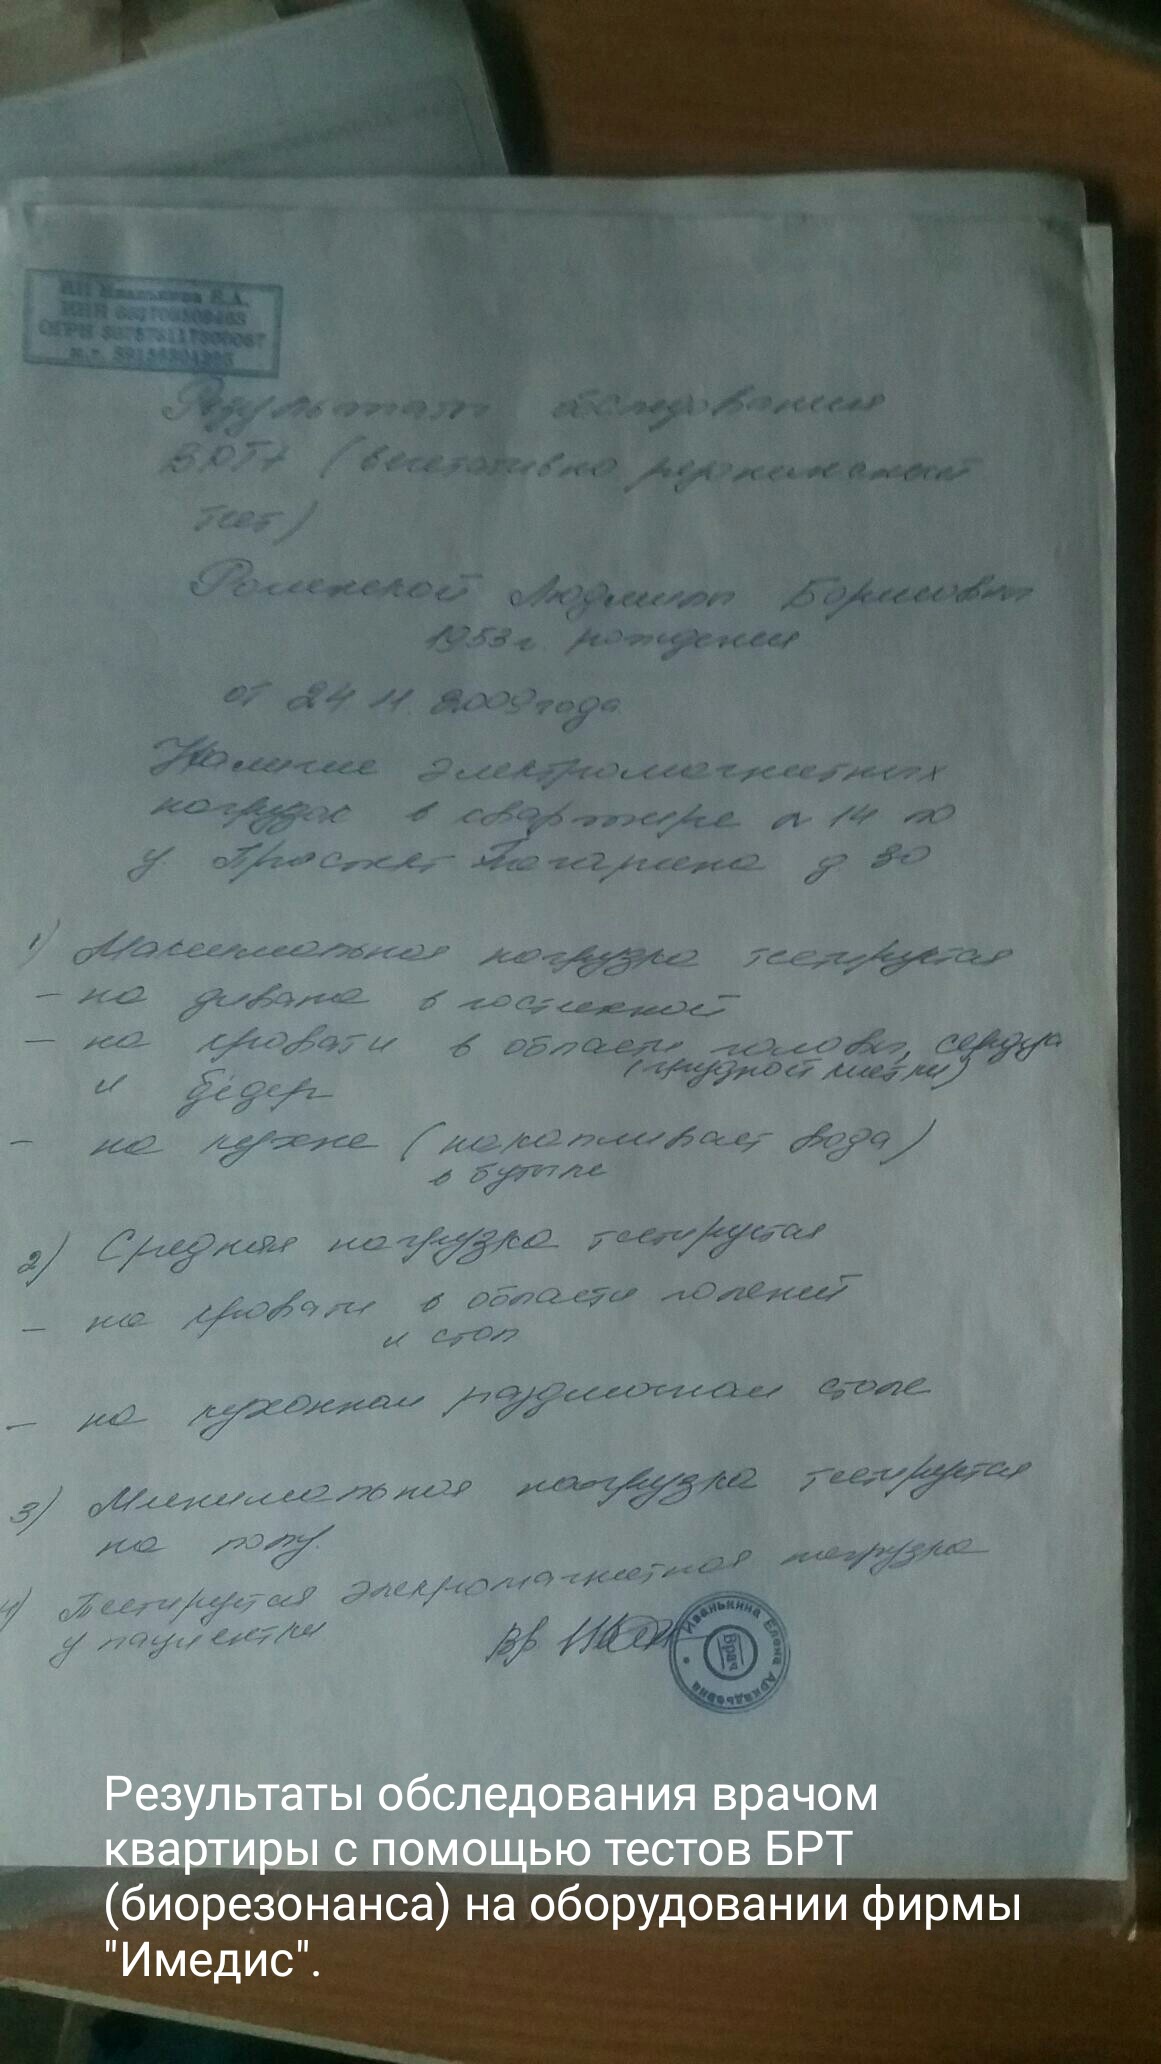 ИП Иванькина Е.А.
ИНН
ОГРН
Результаты обследования
ВРТ (вегетативно резонансный
тест)
Людмилы Борисовны
1953 г. рождения
от 24 11 2009 года
Наличие электромагнитных
нагрузок в квартире 14
Проспект Гагарина д 30
1) Максимальная нагрузка тестируется
- на диване в гостинной
- на кровати в области головы, сердца
(грудной клетки)
и бёдер
- на кухне (накапливает вода)
в бутыле
2) Средняя нагрузка тестируется
- на кровати в области голеней
и стоп
- на кухонном столе
3) Минимальная нагрузка тестируется
на полу.
4) Тестируется электромагнитная нагрузка
у пациентки
вр
Иванькина Елена Аркадьевна
Врач
Результаты обследования врачом
квартиры с помощью тестов БРТ
(биорезонанса) на оборудовании фирмы
"Имедис".